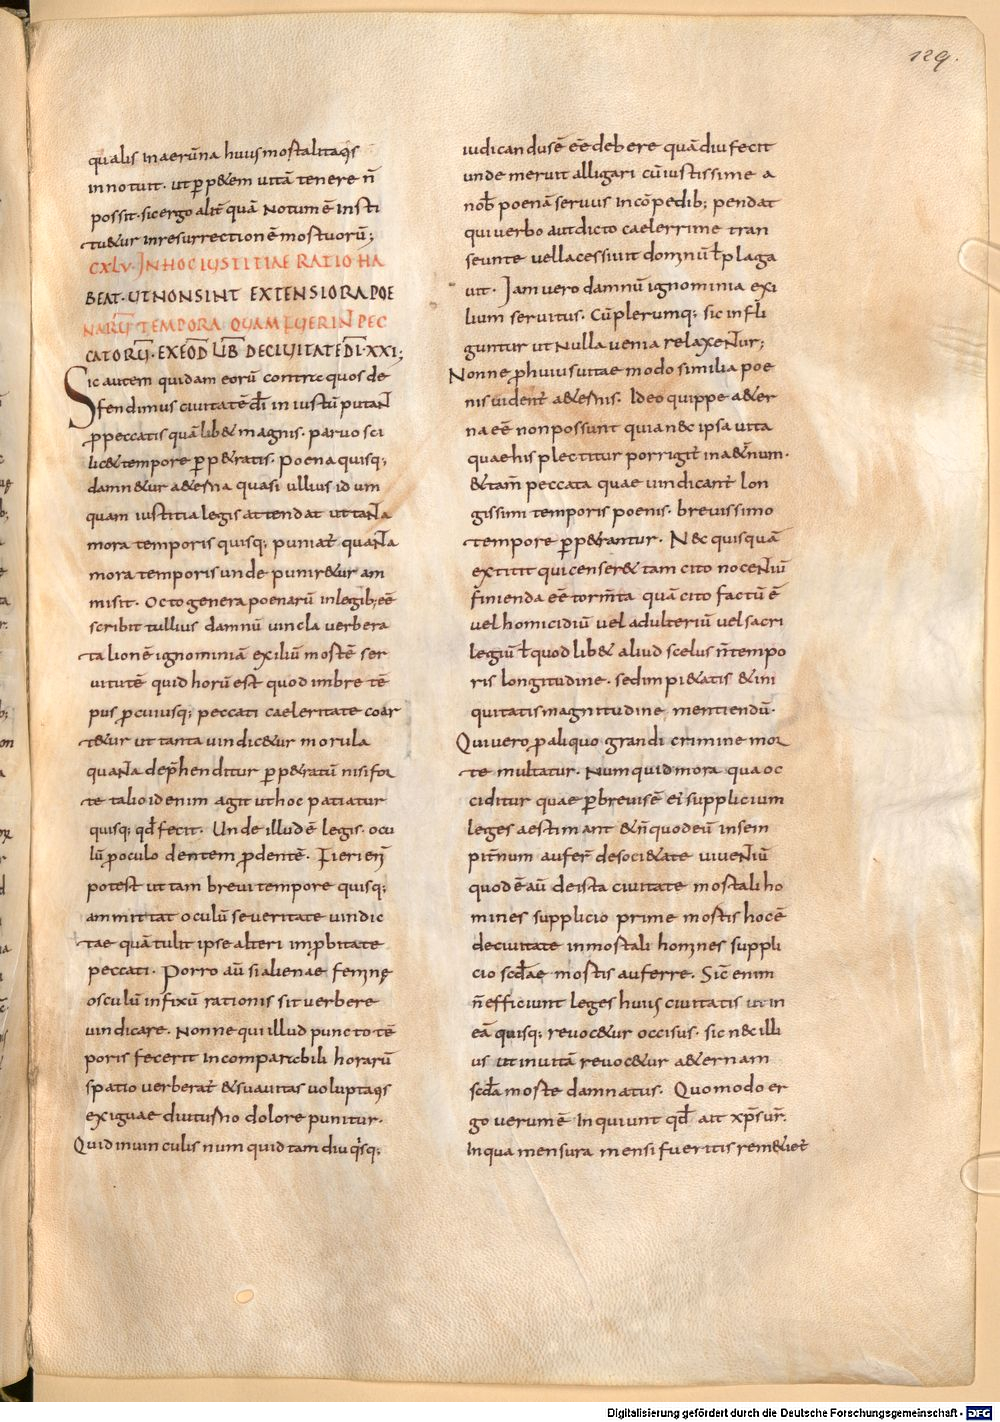 129.
qualis inaerūna huius mortalitatis
innotuit. ut ꝑpetem uitā tenere n̄
possit. sic ergo alit̄ quā Notum ē insti
tuetur in resurrectione mortuorū;
CXLV. IN HOC IUSTITIAE RATIO HA
BEAT. UT NON SINT EXTENSIORA POE
NARŪ TEMPORA QUAM FUERIN̄ PEC
CATORŪ. EX EOD̄ LIB̄ DE CIUITATE DĪ. XXI;
Sic autem quidam eorū contra quos de
fendimus ciuitatē dī iniustū putant
ꝓ peccatis quālibet magnis. paruo sci
licet tempore ꝑpetratis. poena quisq;
damnetur aeterna quasi ullius id um
quam iustitia legis attendat ut tanta
mora temporis quisq; puniat̄ quanta
mora temporis unde puniretur am
misit. Octo genera poenarū in legib; eē
scribit tullius damnū uincla uerbera
talionē ignominiā exiliū mortē ser
uitutē quid horū est quod inbre tē
pus ꝓ cuiusq; peccati caeleritate coar
tetur ut tanta uindicetur morula
quanta dep̄henditur ꝑpetratū nisi for
te talio id enim agit ut hoc patiatur
quisq; qd̄ fecit. Unde illud ē legis. ocu
lū ꝓ oculo dentem ꝓ dentē. Fieri enī
potest ut tam breui tempore quisq;
ammittat oculū seueritate uindic
tae quā tulit ipse alteri imꝓbitate
peccati. Porro aū si alienae feminę
osculū infixū rationis sit uerbere
uindicare. Nonne qui illud puncto tē
poris fecerit incomparabili horarū
spatio uerberat̄ & suauitas uoluptatis
exiguae diuturno dolore punitur.
Quid in uinculis num quid tamdiu quisq;
iudicandus ē eē debere quādiu fecit
unde meruit alligari cū iustissime a
nob̄ poenā seruus in cōpedib; pendat
qui uerbo aut dicto caelerrime tran
seunte uel lacessiuit domnū ł plaga
uit. Iam uero damnū ignominia exi
lium seruitus. Cū plerumq; sic infli
guntur ut Nulla uenia relaxentur;
Nonne ꝓ huius uitae modo similia poe
nis uident̄ aeternis. Ideo quippe aeter
na eē non possunt quia nec ipsa uita
quae his plectitur porrigit̄ in aeternum.
& tam̄ peccata quae uindicant̄ lon
gissimi temporis poenis. breuissimo
tempore ꝑpetrantur. Nec quisquā
extitit qui censeret tam cito nocentiū
finienda eē torm̄ta quā cito factū ē
uel homicidiū uel adulteriū uel sacri
legiū ł quodlibet aliud scelus n̄ tempo
ris longitudine. sed impietatis & ini
quitatis magnitudine mentiendū.
Qui uero ꝓ aliquo grandi crimine mor
te multatur. Numquid mora qua oc
ciditur quae ꝑbreuis ē ei supplicium
leges aestimant & n̄ quod eū in sem
pit̄num aufer̄ de societate uiuentiū
quod ē aū de ista ciuitate mortali ho
mines supplicio prime mortis hoc ē
de ciuitate inmortali homines suppli
cio scd̄ae mortis auferre. Sic enim
n̄ efficiunt leges huius ciuitatis ut in
eā quisq; reuocetur occisus. sic nec illi
us ut in uitā reuocetur aeternam
scd̄a morte damnatus. Quomodo er
go uerum ē Inquiunt qd̄ ait xp̄s ur̄.
In qua mensura mensi fueritis remetiet̄
Digitalisierung gefördert durch die Deutsche Forschungsgemeinschaft - DFG